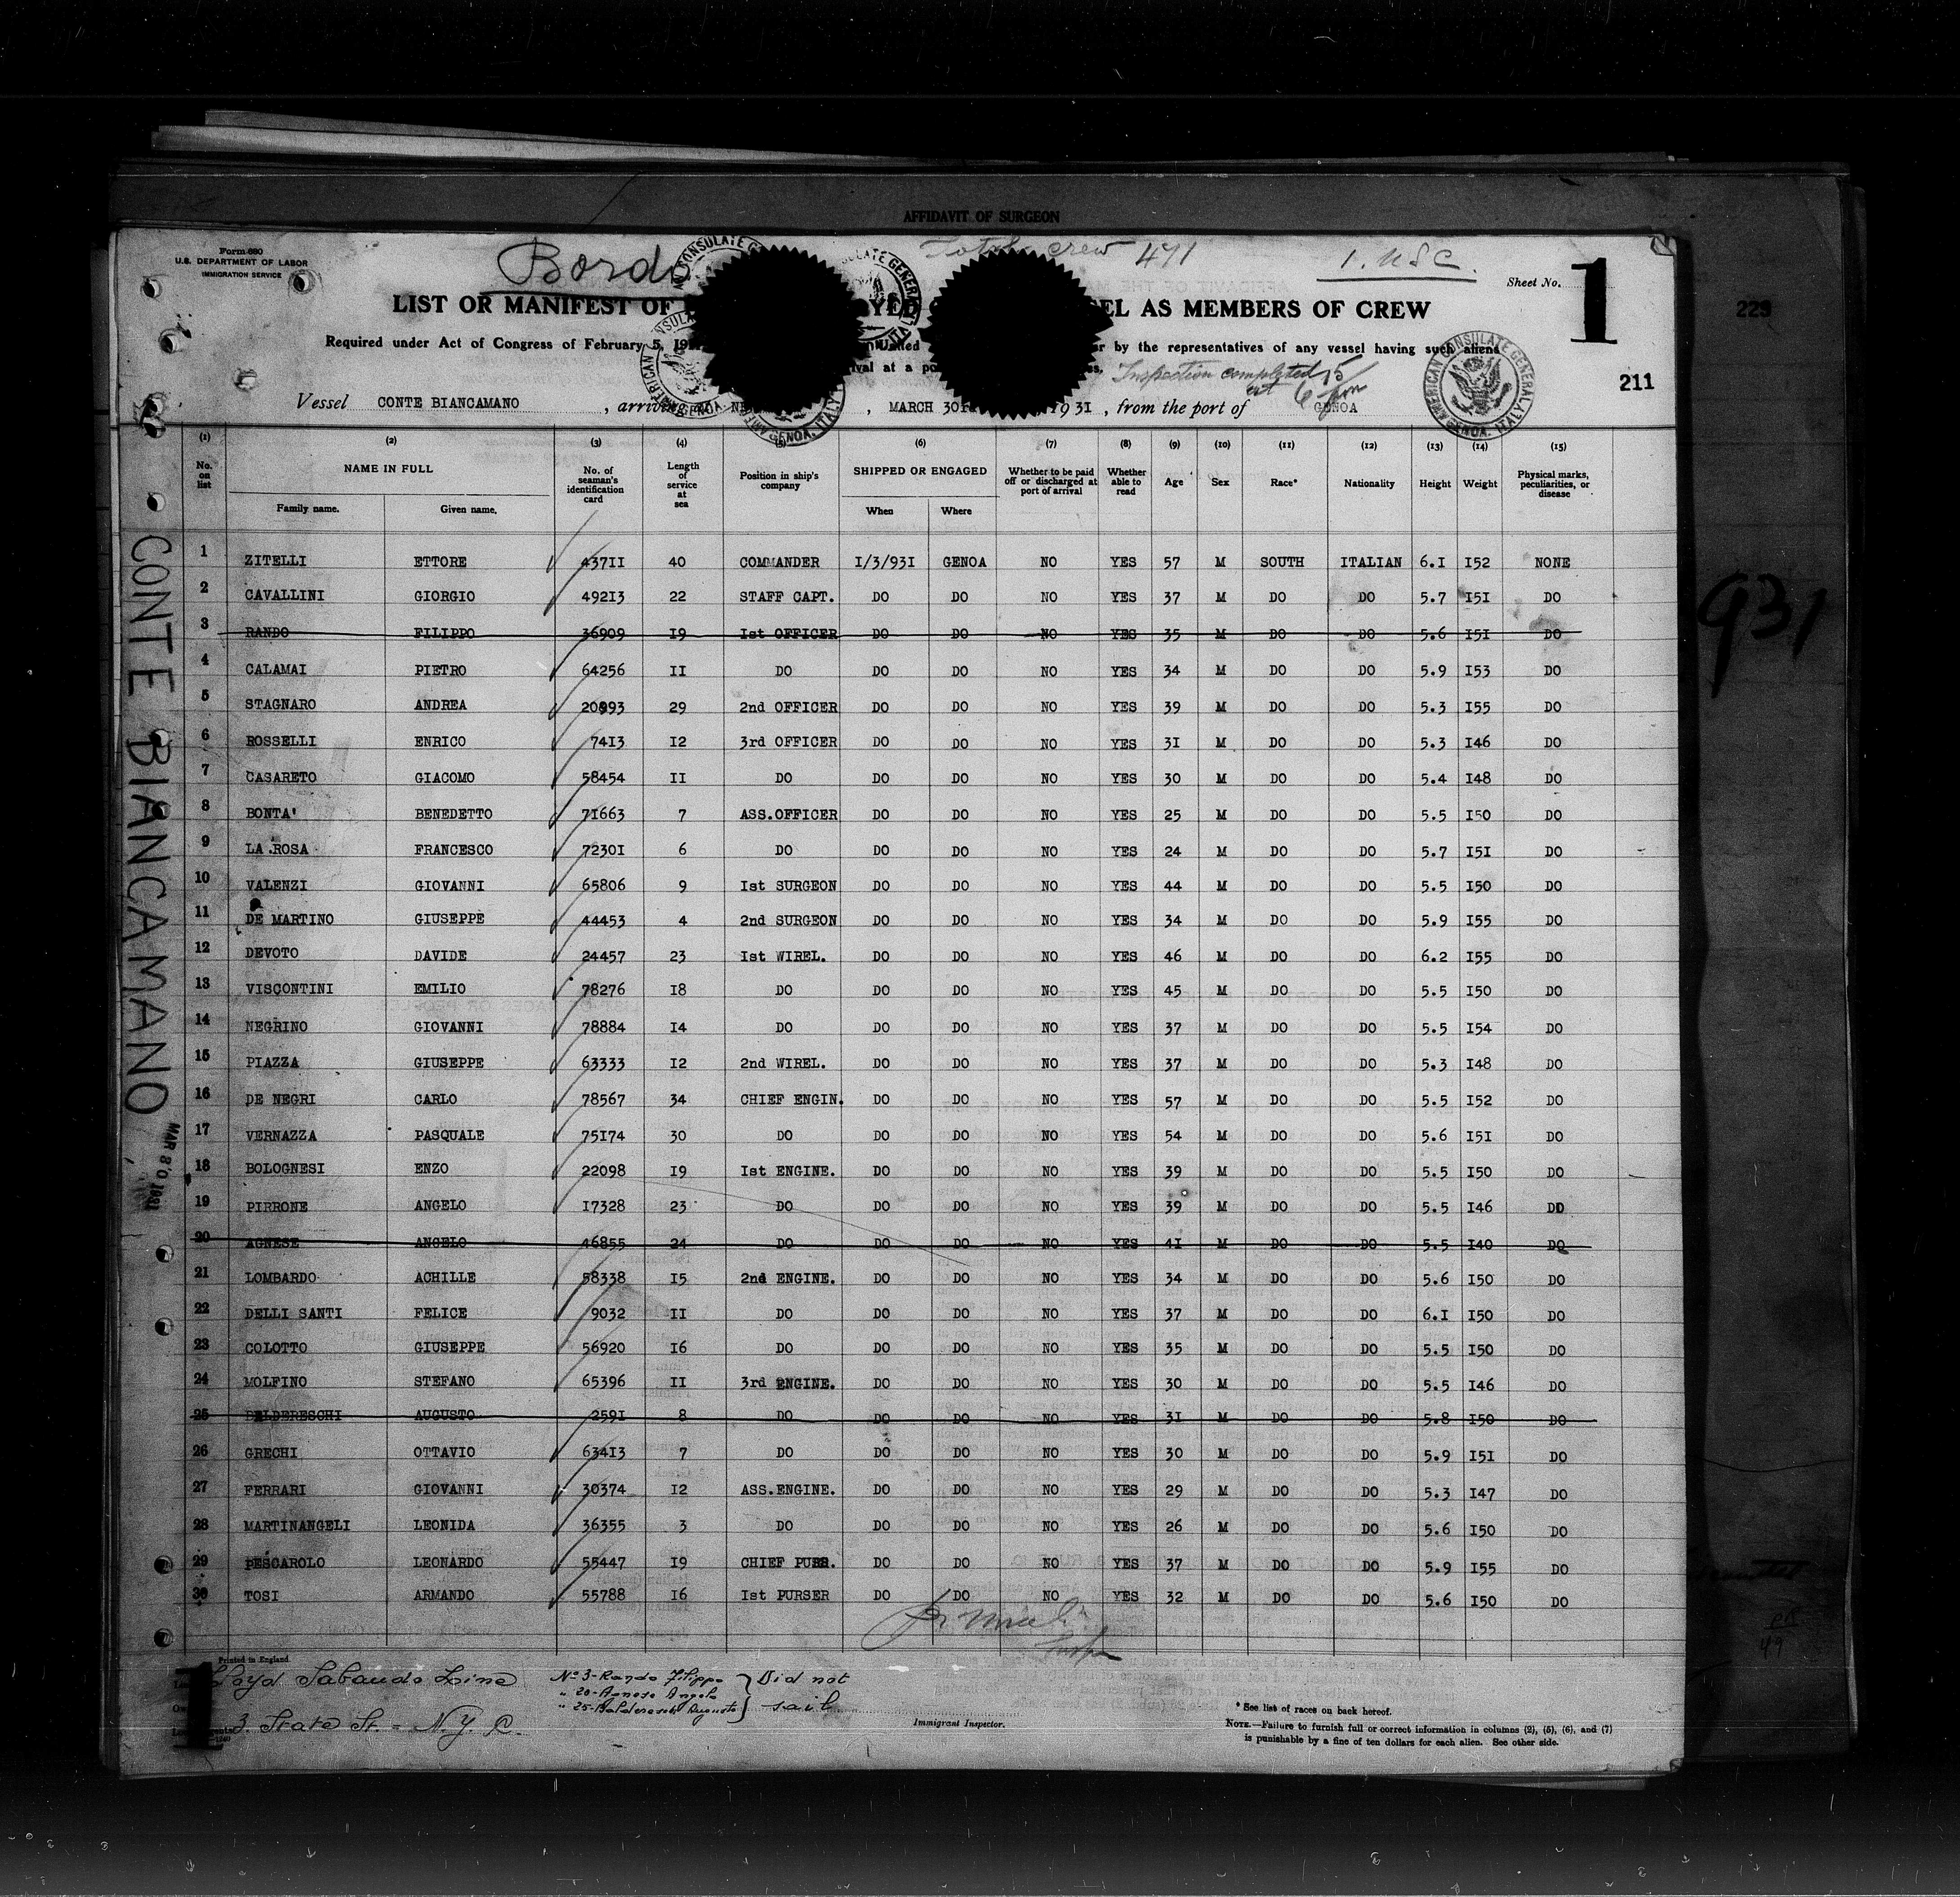 AFFIDAVIT OF SURGEON
Form 680
U.S. DEPARTMENT OF LABOR
IMMIGRATION SERVICE
Total crew 471
1. USC.
Sheet No. 1
LIST OR MANIFEST OF AS MEMBERS OF CREW
Required under Act of Congress of February 5, by the representatives of any vessel having such aliens
Inspection completed
211
229
Vessel CONTE BIANCAMANO , arriving , MARCH 30 1931 , from the port of GENOA
AMERICAN CONSULATE GENERAL
GENOA, ITALY
931
CONTE BIANCAMANO
MAR 30 1931
(1) (2) (3) (4) (5) (6) (7) (8) (9) (10) (11) (12) (13) (14) (15)
No. on list NAME IN FULL No. of seaman's identification card Length of service at sea Position in ship's company SHIPPED OR ENGAGED Whether to be paid off or discharged at port of arrival Whether able to read Age Sex Race* Nationality Height Weight Physical marks, peculiarities, or disease
Family name. Given name. When Where
1 ZITELLI ETTORE 43711 40 COMMANDER I/3/93I GENOA NO YES 57 M SOUTH ITALIAN 6.I I52 NONE
2 CAVALLINI GIORGIO 49213 22 STAFF CAPT. DO DO NO YES 37 M DO DO 5.7 I5I DO
3 RANDO FILIPPO 36909 I9 Ist OFFICER DO DO NO YES 35 M DO DO 5.6 I5I DO
4 CALAMAI PIETRO 64256 II DO DO DO NO YES 34 M DO DO 5.9 I53 DO
5 STAGNARO ANDREA 20993 29 2nd OFFICER DO DO NO YES 39 M DO DO 5.3 I55 DO
6 ROSSELLI ENRICO 74I3 I2 3rd OFFICER DO DO NO YES 3I M DO DO 5.3 I46 DO
7 CASARETO GIACOMO 58454 II DO DO DO NO YES 30 M DO DO 5.4 I48 DO
8 BONTA' BENEDETTO 7I663 7 ASS.OFFICER DO DO NO YES 25 M DO DO 5.5 I50 DO
9 LA ROSA FRANCESCO 7230I 6 DO DO DO NO YES 24 M DO DO 5.7 I5I DO
10 VALENZI GIOVANNI 65806 9 Ist SURGEON DO DO NO YES 44 M DO DO 5.5 I50 DO
11 DE MARTINO GIUSEPPE 44453 4 2nd SURGEON DO DO NO YES 34 M DO DO 5.9 I55 DO
12 DEVOTO DAVIDE 24457 23 Ist WIREL. DO DO NO YES 46 M DO DO 6.2 I55 DO
13 VISCONTINI EMILIO 78276 I8 DO DO DO NO YES 45 M DO DO 5.5 I50 DO
14 NEGRINO GIOVANNI 78884 I4 DO DO DO NO YES 37 M DO DO 5.5 I54 DO
15 PIAZZA GIUSEPPE 63333 I2 2nd WIREL. DO DO NO YES 37 M DO DO 5.3 I48 DO
16 DE NEGRI CARLO 78567 34 CHIEF ENGIN. DO DO NO YES 57 M DO DO 5.5 I52 DO
17 VERNAZZA PASQUALE 75I74 30 DO DO DO NO YES 54 M DO DO 5.6 I5I DO
18 BOLOGNESI ENZO 22098 I9 Ist ENGINE. DO DO NO YES 39 M DO DO 5.5 I50 DO
19 PIRRONE ANGELO I7328 23 DO DO DO NO YES 39 M DO DO 5.5 I46 DO
20 AGNESE ANGELO 46855 24 DO DO DO NO YES 4I M DO DO 5.5 I40 DO
21 LOMBARDO ACHILLE 58338 I5 2nd ENGINE. DO DO NO YES 34 M DO DO 5.6 I50 DO
22 DELLI SANTI FELICE 9032 II DO DO DO NO YES 37 M DO DO 6.I I50 DO
23 COLOTTO GIUSEPPE 56920 I6 DO DO DO NO YES 35 M DO DO 5.5 I50 DO
24 MOLFINO STEFANO 65396 II 3rd ENGINE. DO DO NO YES 30 M DO DO 5.5 I46 DO
25 BALDERESCHI AUGUSTO 259I 8 DO DO DO NO YES 3I M DO DO 5.8 I50 DO
26 GRECHI OTTAVIO 634I3 7 DO DO DO NO YES 30 M DO DO 5.9 I5I DO
27 FERRARI GIOVANNI 30374 I2 ASS.ENGINE. DO DO NO YES 29 M DO DO 5.3 I47 DO
28 MARTINANGELI LEONIDA 36355 3 DO DO DO NO YES 26 M DO DO 5.6 I50 DO
29 PESCAROLO LEONARDO 55447 I9 CHIEF PURS. DO DO NO YES 37 M DO DO 5.9 I55 DO
30 TOSI ARMANDO 55788 I6 Ist PURSER DO DO NO YES 32 M DO DO 5.6 I50 DO
Printed in England
1
Lloyd Sabaudo Line
3. State St. = N.Y.C.
No 3-Rando Filippo
" 20-Agnese Angelo
" 25-Baldereschi Augusto
Did not
sail
Immigrant Inspector.
* See list of races on back hereof.
NOTE.—Failure to furnish full or correct information in columns (2), (5), (6), and (7)
is punishable by a fine of ten dollars for each alien. See other side.